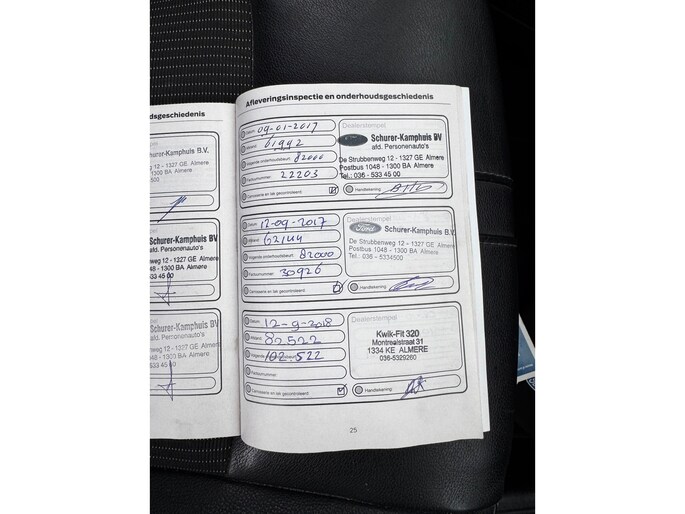 dsgeschiedenis
Schurer-Kamphuis B.V.
afd. Personenauto's
12 - 1327 GE Almere
- 1300 BA Almere
500
Schurer-Kamphuis BV
afd. Personenauto's
12 - 1327 GE Almere
- 1300 BA Almere
533 45 00
Schurer-Kamphuis BV
afd. Personenauto's
12 - 1327 GE Almere
- 1300 BA Almere
533 45 00
Afleveringsinspectie en onderhoudsgeschiedenis
Datum: 09-01-2017
Kilometerstand: 61992
Volgende onderhoudsbeurt: 82000
Factuurnummer: 22203
Carrosserie en lak gecontroleerd:
Dealerstempel
Schurer-Kamphuis BV
afd. Personenauto's
De Strubbenweg 12 - 1327 GE Almere
Postbus 1048 - 1300 BA Almere
Tel.: 036 - 533 45 00
Handtekening:
Datum: 12-09-2017
62144
Volgende onderhoudsbeurt: 82000
Factuurnummer: 30926
Carrosserie en lak gecontroleerd:
Dealerstempel
Ford
Schurer-Kamphuis B.V.
De Strubbenweg 12 - 1327 GE Almere
Postbus 1048 - 1300 BA Almere
Tel.: 036 - 5334500
Handtekening:
Datum: 12-9-2018
82.522
Volgende 102.522
Factuurnummer:
Carrosserie en lak gecontroleerd:
Dealerstempel
Kwik-Fit 320
Montrealstraat 31
1334 KE ALMERE
036-5329260
Handtekening:
25